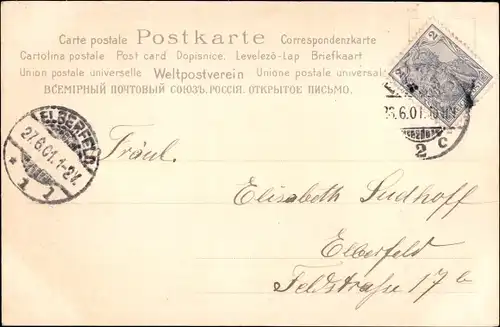 Carte postale Postkarte Correspondenzkarte
Cartolina postale Post card Dopisnice. Levelező-Lap Briefkaart
Union postale universelle Weltpostverein Unione postale universale
ВСЕМІРНЫЙ ПОЧТОВЫЙ СОЮЗЪ. РОССІЯ. ОТКРЫТОЕ ПИСЬМО.
2
6.01.
2 c
ELBERFELD
27.6.01.1-2V.
* 1 1
Fräul.
Elisabeth Sudhoff
Elberfeld
Feldstraße 17b